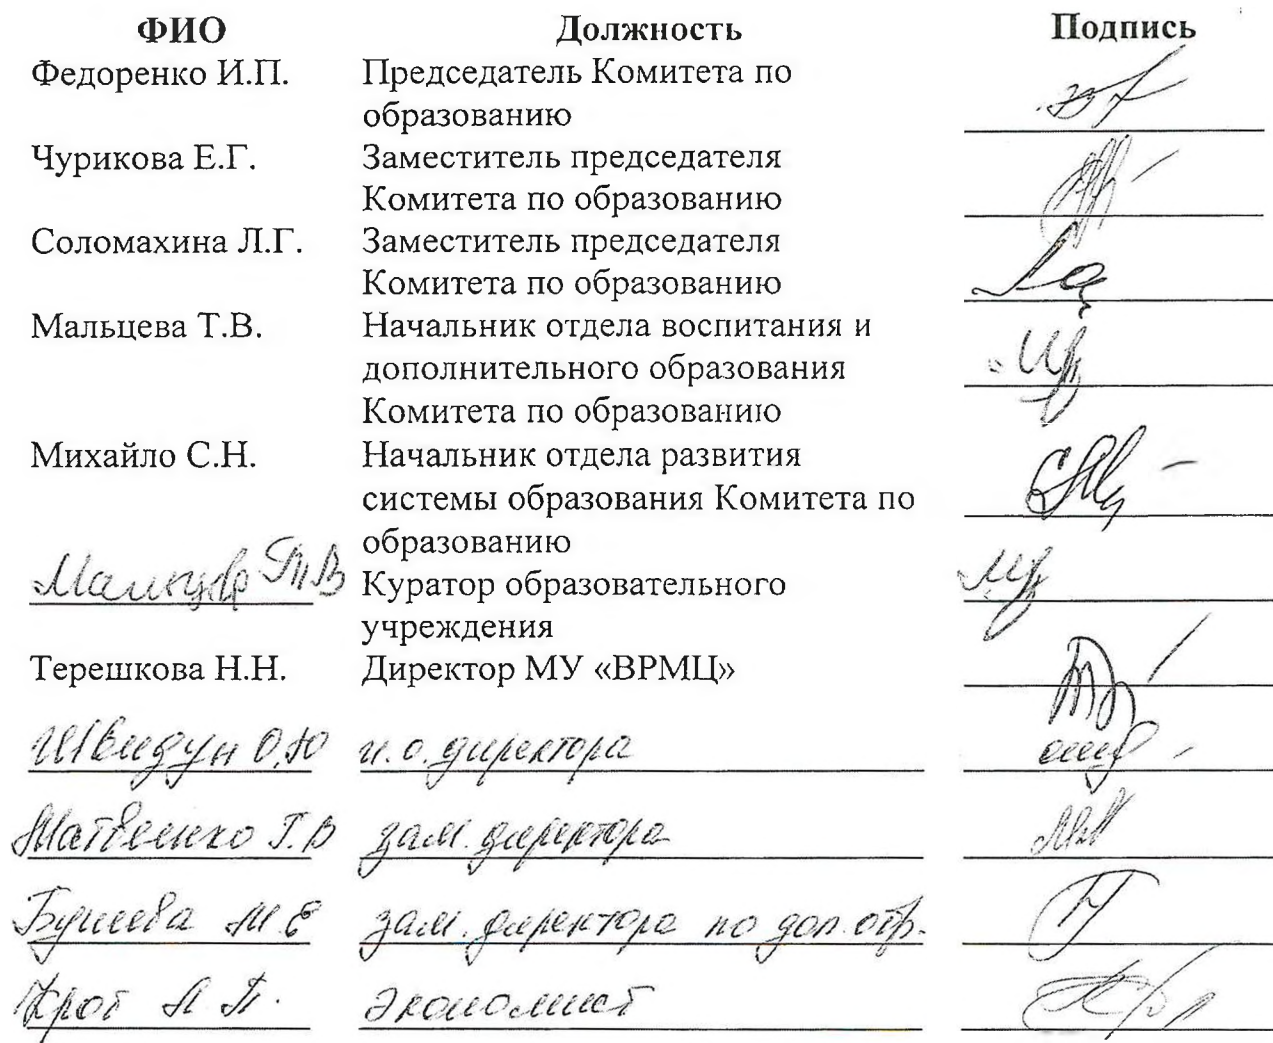 ФИО Должность Подпись
Федоренко И.П. Председатель Комитета по
образованию
Чурикова Е.Г. Заместитель председателя
Комитета по образованию
Соломахина Л.Г. Заместитель председателя
Комитета по образованию
Мальцева Т.В. Начальник отдела воспитания и
дополнительного образования
Комитета по образованию
Михайло С.Н. Начальник отдела развития
системы образования Комитета по
образованию
Мальцева Т.В Куратор образовательного
учреждения
Терешкова Н.Н. Директор МУ «ВРМЦ»
Швидун О.Ю и.о. директора
Матвеенко Г.В зам. директора
М.Е зам. директора по доп. обр.
Крот А.П. экономист